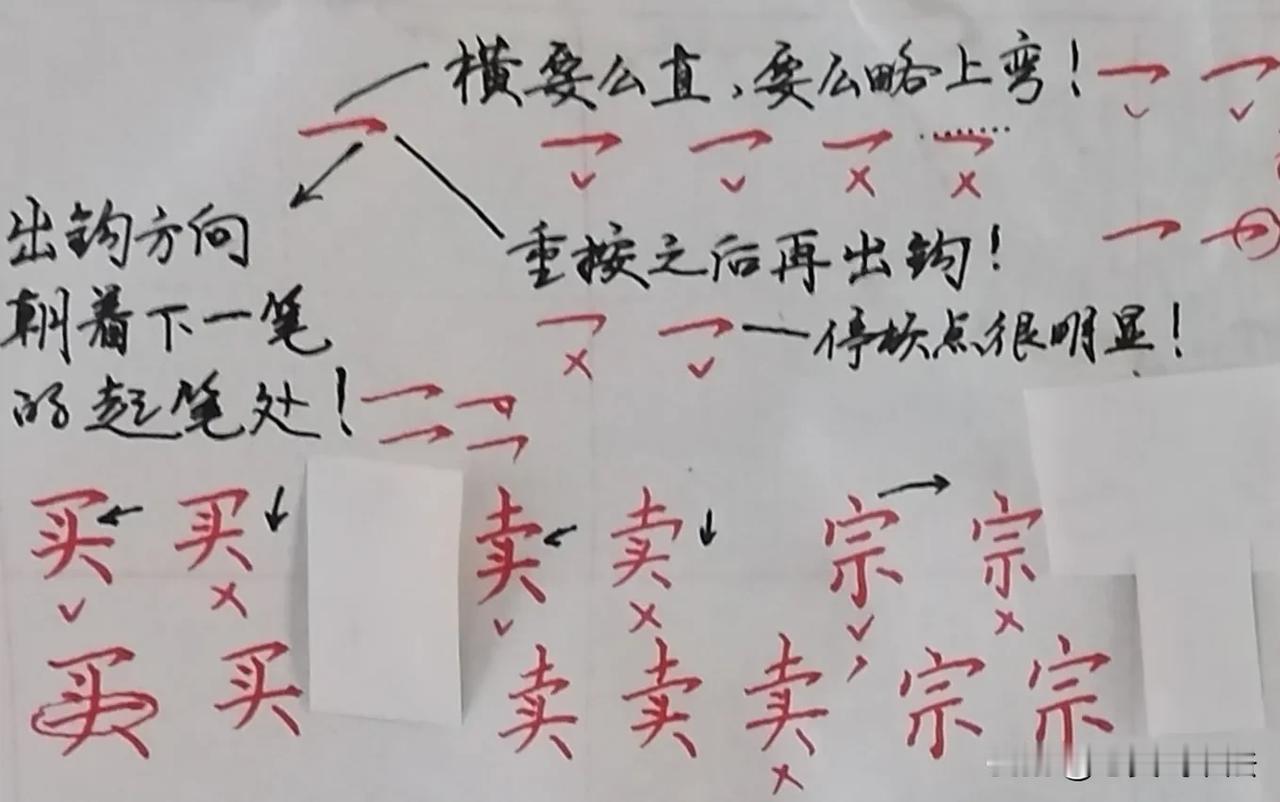 横要么直，要么略上弯！
重按之后再出钩！
停顿点很明显！
出钩方向
朝着下一笔
的起笔处！
买 买 卖 卖 宗 宗
买 买 卖 卖 卖 宗 宗